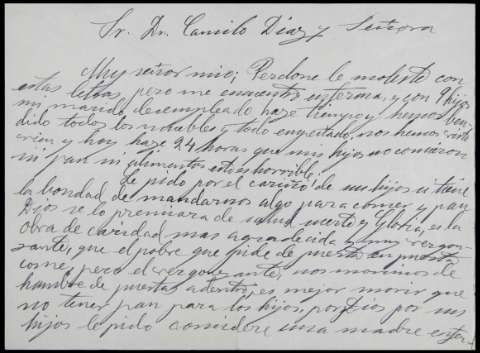 Sr. Dr. Camilo Díaz y Señora
Muy señor mio; Perdone le moleste con
estas letras, pero me encuentro enferma, y con 9 hijos
mi marido desempleado haze tiempo y hemos ven-
dido todos los muebles y todo enpeñado, nos hemos
y hoy haze 24 horas que mis hijos no comieron
ni pan ni alimentos es horrible!
Le pido por el cariño de sus hijos si tiene
la bondad de mandarnos algo para comer y pan
Dios se lo premiara de salud suerte y Gloria, es la
obra de caridad mas agradecida y muy vergon-
sante, que el pobre que pide de puerta en puerta
come, pero el vergonsante, nos morimos de
hambre de puertas adentro, es mejor morir que
no tener pan para los hijos, por Dios por sus
hijos le pido considere una madre enfer-